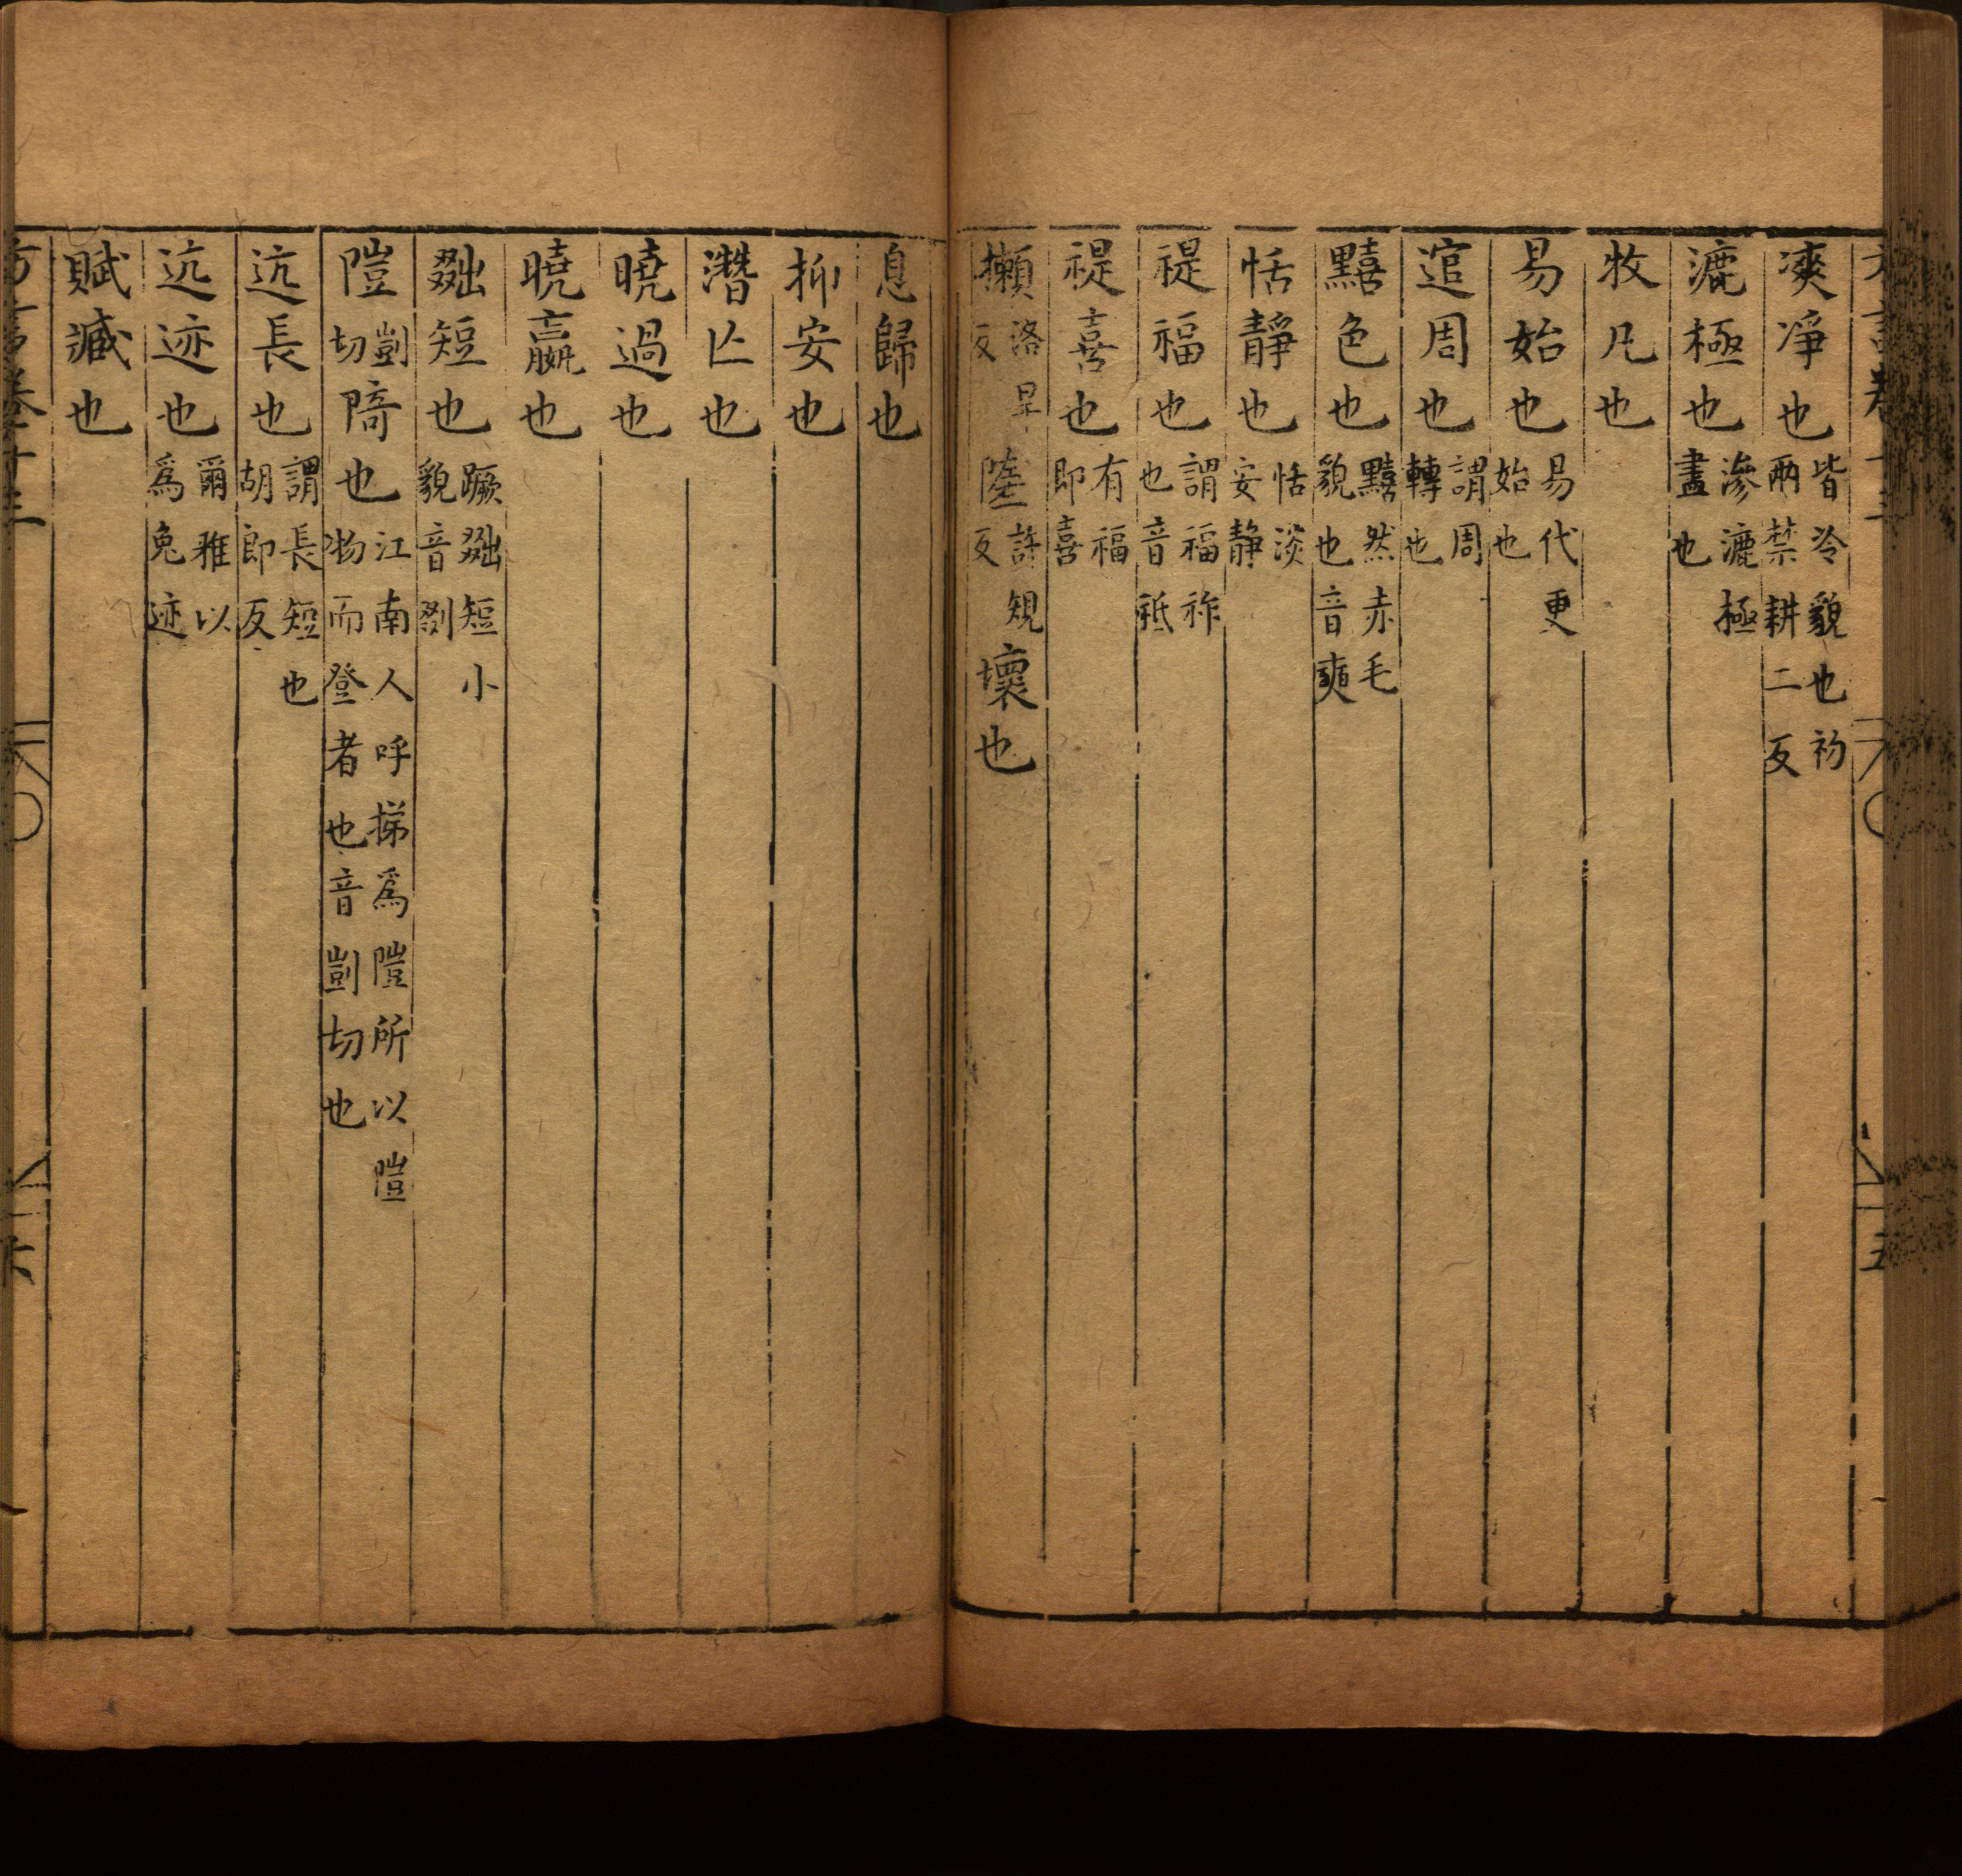 㵐凈也皆冷貌也初兩禁耕二反
漉極也滲漉極盡也
牧凡也
易始也易代更始也
逭周也謂周轉也
䵱色也䵱然赤毛貌也音奭
恬靜也恬淡安靜
禔福也謂福祚也音祗
禔喜也有福即喜
攋洛旱反隓許規反壞也
息歸也
抑安也
潛亾也
曉過也
曉嬴也
䠂短也蹶䠂短小貌音剟
隑剴切陭也江南人呼梯為隑所以隑物而登者也音剴切也
迒長也謂長短也胡郎反
迒迹也爾雅以為兔迹
賦臧也
方言卷十三
六